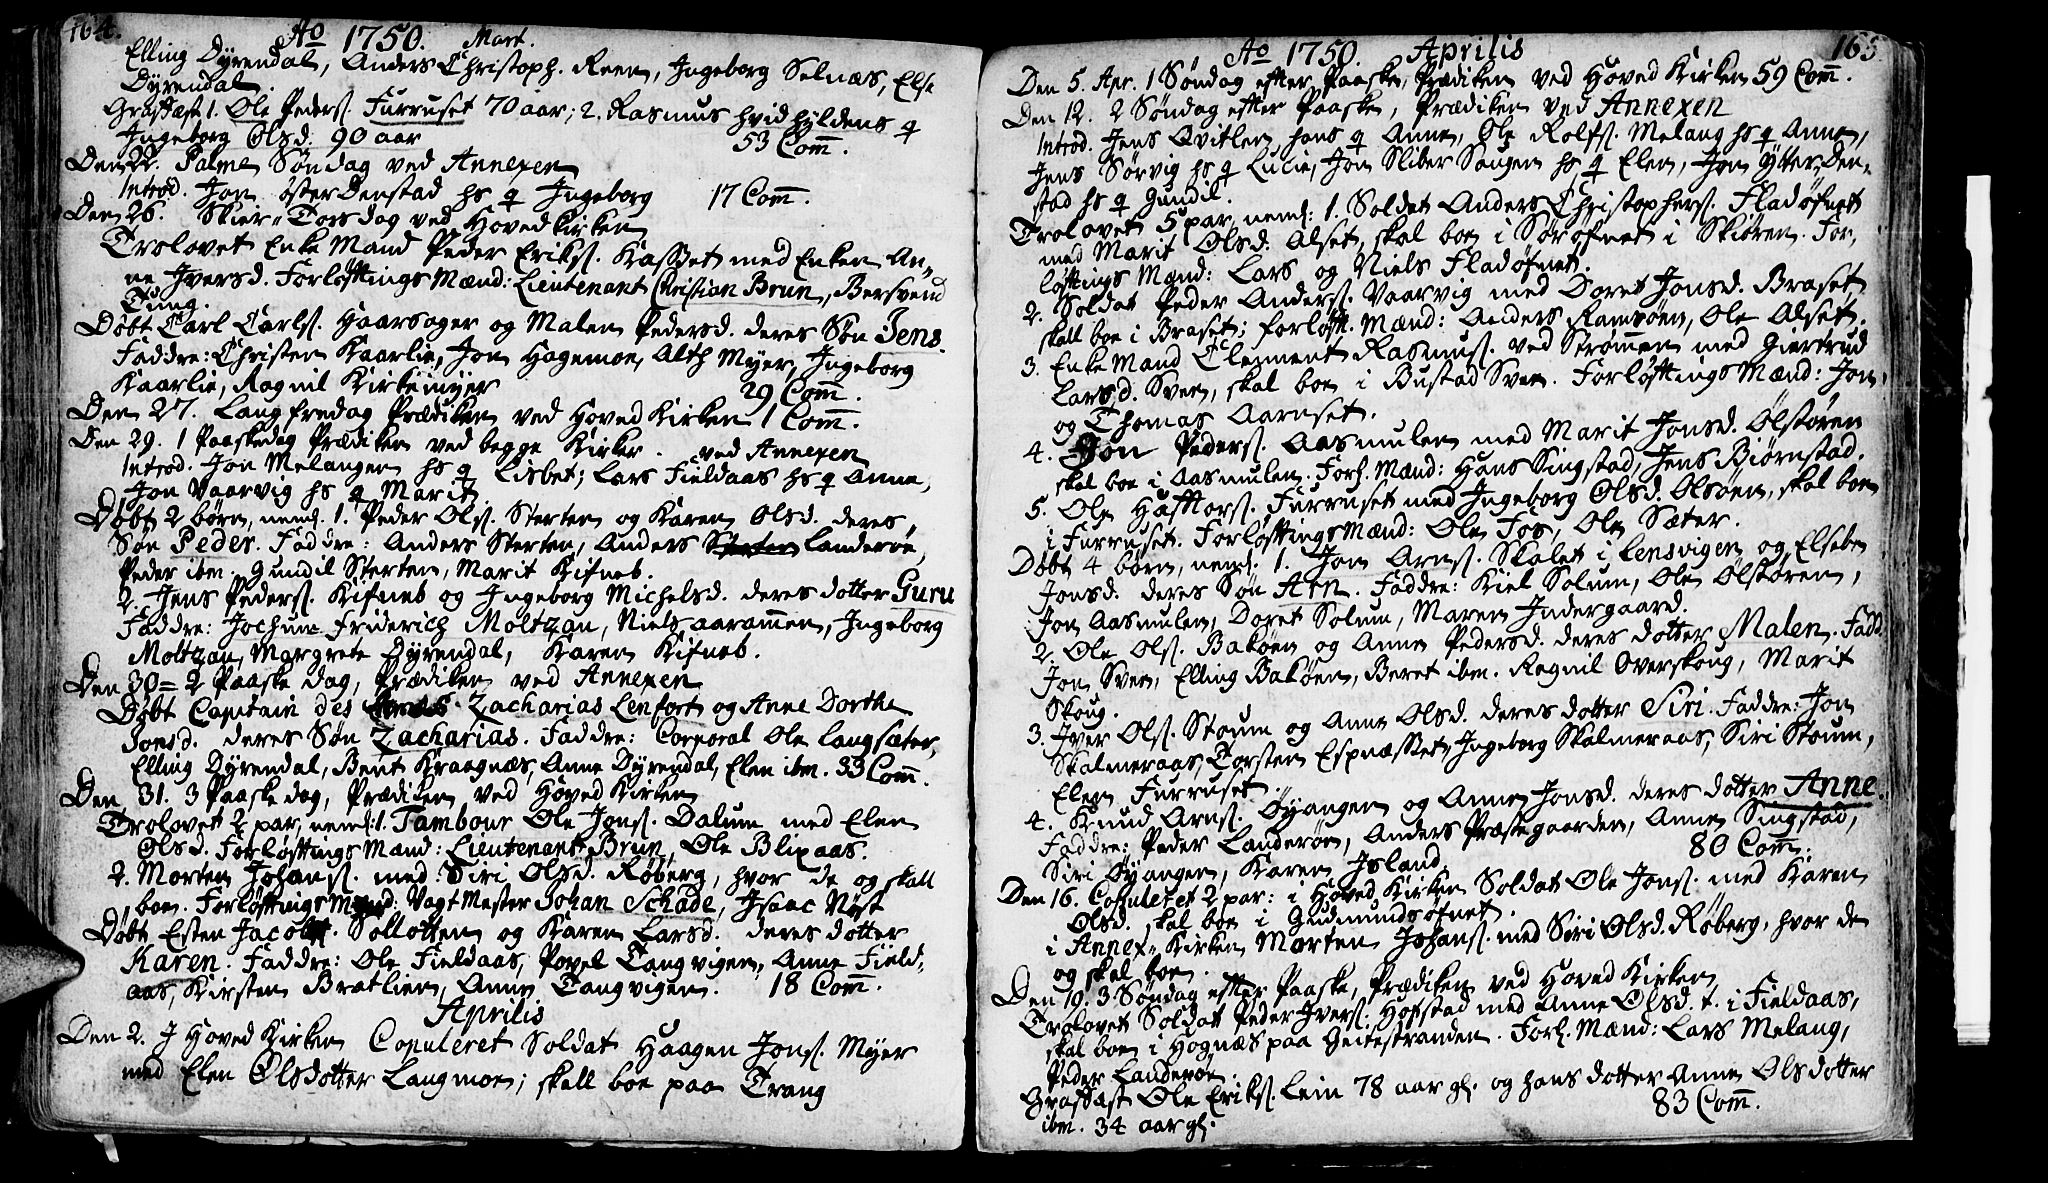 164.
Ao 1750. Mart.
Elling Dyrendal, Anders Christoph. Reen, Ingeborg Selnæs, Else
Dyrendal.
Graffæst 1. Ole Peders. Furruset 70 aar; 2. Rasmus Hvidhyldens q
Ingeborg Olsd. 90 aar 53 Com̅.
Den 22. Palme Søndag ved Annexen
Introd. Jon Øster Denstad hs q Ingeborg 17 Com̅.
Den 26. Skier-Torsdag ved Hoved Kirken
Trolovet Enke Mand Peder Eriks. Kasset med Enken An-
ne Iversd. Forløftnings Mænd: Lieutenant Christian Brun, Bersvend
Tung.
Døbt Carl Carls. Haarsager og Malen Pedersd. deres Søn Jens.
Faddre: Christen Kaarlie, Jon Hagemoe, Alth Myer, Ingeborg
Kaarlie, Ragnil Kirkemyer 29 Com̅.
Den 27. Langfredag Prædiken ved Hoved Kirken 1 Com̅.
Den 29. 1 Paaskedag Prædiken ved begge Kirker. ved Annexen
Introd. Jon Melangen hs q Lisbet; Lars Fieldaas hs q Anne,
Jon Vaarvig hs q Marit
Døbt 2 børn, neml. 1. Peder Ols. Sterten og Karen Olsd. deres
Søn Peder. Faddre: Anders Sterten, Anders Landerøe,
Peder ibm. Gundil Sterten, Marit Kifneb.
2. Jens Peders. Kifneb og Ingeborg Michelsd. deres dotter Guru
Faddre: Jochum Friderich Moltzau, Niels Aarammen, Ingeborg
Moltzau, Margrete Dyrendal, Karen Kifneb.
Den 30= 2 Paaske dag, Prædiken ved Annexen
Døbt Capitain des Zacharias Lenfort og Anne Dorthe
Jonsd. deres Søn Zacharias. Faddre: Corporal Ole Langsæter,
Elling Dyrendal, Bent Kraagnæs, Anne Dyrendal, Elen ibm. 33 Com̅.
Den 31. 3 Paaske dag, Prædiken ved Hoved Kirken
Trolovet 2 par, neml: 1. Tambour Ole Jons. Dalum med Elen
Olsd. Forløftnings Mænd: Lieutenant Brun, Ole Blixaas.
2. Morten Johans. med Siri Olsd. Røberg, hvor de og skall
boe. Forløftnings Mænd: Vagt Mester Johan Schade, Isaac Nøst
Døbt Esten Jacobs. Sollotten og Karen Larsd. deres dotter
Karen. Faddre: Ole Fieldaas, Povel Tangvigen, Anne Field-
aas, Kirsten Bratlien, Anne Tangvigen. 18 Com̅.
Aprilis
Den 2. I Hoved Kirken Copuleret Soldat Haagen Jons. Myer
med Elen Olsdotter Langmoe; skall boe paa Trang
165
Ao 1750. Aprilis
Den 5. Apr. 1 Søndag efter Paaske, Prædiken ved Hoved Kirken 59 Com̅.
Den 12. 2 Søndag efter Paaske, Prædiken ved Annexen
Introd. Jens Qvitlen hans q Anne, Ole Rolfs. Melang hs q Anne,
Jens Sørvig hs q Lucie, Jon Sliber Saugen hs q Elen, Jon Ytter Den-
stad hs q Gundil.
Trolovet 5 par, neml: 1. Soldat Anders Christophers. Fladøfnet
med Marit Olsd. Alset, skal boe i Sørøfnet i Skiøren. For-
løftnings Mænd: Lars og Niels Fladøfnet.
2. Soldat Peder Anders. Vaarvig med Doret Jonsd. Braset
skall boe i Braset; Forløftn. Mænd: Anders Ramsøen, Ole Alset.
3. Enke Mand Clement Rasmuss. ved Strømen med Giertrud
Larsd. Sven, skal boe i Bustad Sven. Forløftnings Mænd: Jon
og Thomas Aarnset.
4. Jon Peders. Aasmulen med Marit Jonsd. Olstøren
skal boe i Aasmulen. Forl. Mænd: Hans Singstad, Jens Biørnstad.
5. Ole Hafftors. Furruset med Ingeborg Olsd. Olsøen, skal boe
i Furruset. Forløftnings Mænd: Ole Fos, Ole Sæter.
Døbt 4 børn, neml. 1. Jon Arns. Skalet i Lensvigen og Elseber
Jonsd. deres Søn Arn. Faddre: Kiel Solum, Ole Olstøren,
Jon Aasmulen, Doret Solum, Maren Indergaard.
2. Ole Ols. Bakøen og Anne Pedersd. deres dotter Malen. Fadd.
Jon Sven, Elling Bakøen, Beret ibm. Ragnil Overskoug, Marit
Skoug.
3. Iver Ols. Stoum og Anne Olsd. deres dotter Siri. Faddre: Jon
Skalmeraas, Torsten Espnæsset, Ingeborg Skalmeraas, Siri Stoum,
Elen Furruset.
4. Knud Arns. Øyangen og Anne Jonsd. deres dotter Anne.
Faddre: Peder Landerøe, Anders Præstegaarden, Anne Singstad,
Siri Øyangen, Karen Island. 80 Com̅.
Den 16. Copuleret 2 par: i Hoved Kirken Soldat Ole Jons. med Karen
Olsd. skal boe i Gudmundsøfnet.
i Annex-Kirken Morten Johans. med Siri Olsd. Røberg, hvor de
og skal boe.
Den 19. 3 Søndag efter Paaske, Prædiken ved Hoved Kirken
Trolovet Soldat Peder Ivers. Hofstad med Anne Olsd. t. i Fieldaas,
skal boe i Hognæs paa Geitestranden. Forl. Mænd: Lars Melang,
Peder Landerøe.
Graffæst Ole Eriks. Lein 78 aar gl. og hans dotter Anne Olsdotter
ibm. 34 aar gl. 83 Com̅.